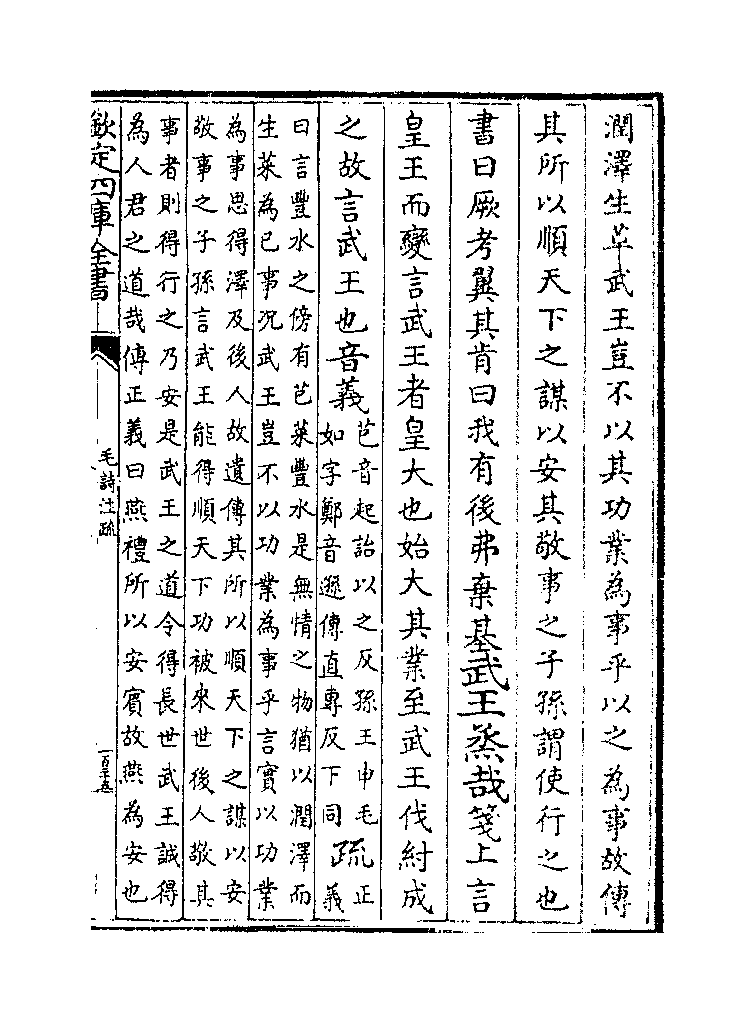 潤澤生草武王豈不以其功業為事乎以之為事故傳
其所以順天下之謀以安其敬事之子孫謂使行之也
書曰厥考翼其肯曰我有後弗棄基武王烝哉箋上言
皇王而變言武王者皇大也始大其業至武王伐紂成
之故言武王也音義芑音起詒以之反孫王申毛
如字鄭音遜傳直專反下同疏正
義
曰言豐水之傍有芑菜豐水是無情之物猶以潤澤而
生菜為已事況武王豈不以功業為事乎言實以功業
為事思得澤及後人故遺傳其所以順天下之謀以安
敬事之子孫言武王能得順天下功被來世後人敬其
事者則得行之乃安是武王之道令得長世武王誠得
為人君之道哉傳正義曰燕禮所以安賓故燕為安也
欽定四庫全書
毛詩注疏